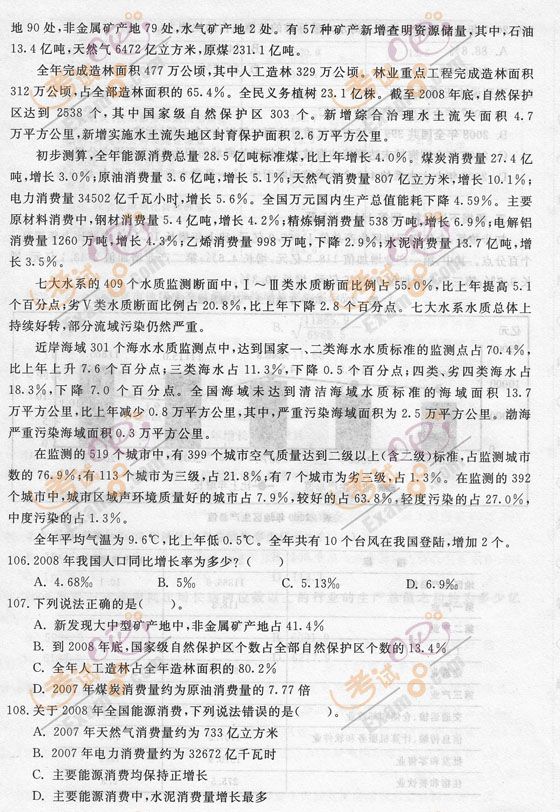 地 90 处,非金属矿产地 79 处,水气矿产地 2 处。有 57 种矿产新增查明资源储量,其中,石油
13.4 亿吨,天然气 6472 亿立方米,原煤 231.1 亿吨。
全年完成造林面积 477 万公顷,其中人工造林 329 万公顷。林业重点工程完成造林面积
312 万公顷,占全部造林面积的 65.4%。全民义务植树 23.1 亿株。截至 2008 年底,自然保护
区达到 2538 个,其中国家级自然保护区 303 个。新增综合治理水土流失面积 4.7
万平方公里,新增实施水土流失地区封育保护面积 2.6 万平方公里。
初步测算,全年能源消费总量 28.5 亿吨标准煤,比上年增长 4.0%。煤炭消费量 27.4 亿
吨,增长 3.0%;原油消费量 3.6 亿吨,增长 5.1%;天然气消费量 807 亿立方米,增长 10.1%;
电力消费量 34502 亿千瓦小时,增长 5.6%。全国万元国内生产总值能耗下降 4.59%。主要
原材料消费中,钢材消费量 5.4 亿吨,增长 4.2%;精炼铜消费量 538 万吨,增长 6.9%;电解铝
消费量 1260 万吨,增长 4.3%;乙烯消费量 998 万吨,下降 2.9%;水泥消费量 13.7 亿吨,增
长 3.5%。
七大水系的 409 个水质监测断面中,Ⅰ～Ⅲ类水质断面比例占 55.0%,比上年提高 5.1
个百分点;劣Ⅴ类水质断面比例占 20.8%,比上年下降 2.8 个百分点。七大水系水质总体上
持续好转,部分流域污染仍然严重。
近岸海域 301 个海水水质监测点中,达到国家一、二类海水水质标准的监测点占 70.4%,
比上年上升 7.6 个百分点;三类海水占 11.3%,下降 0.5 个百分点;四类、劣四类海水占
18.3%,下降 7.0 个百分点。全国海域未达到清洁海域水质标准的海域面积 13.7
万平方公里,比上年减少 0.8 万平方公里;其中,严重污染海域面积为 2.5 万平方公里。渤海
严重污染海域面积 0.3 万平方公里。
在监测的 519 个城市中,有 399 个城市空气质量达到二级以上(含二级)标准,占监测城市
数的 76.9%;有 113 个城市为三级,占 21.8%;有 7 个城市为劣三级,占 1.3%。在监测的 392
个城市中,城市区域声环境质量好的城市占 7.9%,较好的占 63.8%,轻度污染的占 27.0%,
中度污染的占 1.3%。
全年平均气温为 9.6℃,比上年低 0.5℃。全年共有 10 个台风在我国登陆,增加 2 个。
106.2008 年我国人口同比增长率为多少?( )
A. 4.68‰ B. 5‰ C. 5.13‰ D. 6.9‰
107.下列说法正确的是( )。
A. 新发现大中型矿产地中,非金属矿产地占 41.4%
B. 到 2008 年底,国家级自然保护区个数占全部自然保护区个数的 13.4%
C. 全年人工造林占全年造林面积的 80.2%
D. 2007 年煤炭消费量约为原油消费量的 7.77 倍
108.关于 2008 年全国能源消费,下列说法错误的是( )。
A. 2007 年天然气消费量约为 733 亿立方米
B. 2007 年电力消费量约为 32672 亿千瓦时
C. 主要能源消费均保持正增长
D. 主要能源消费中,水泥消费量增长最多